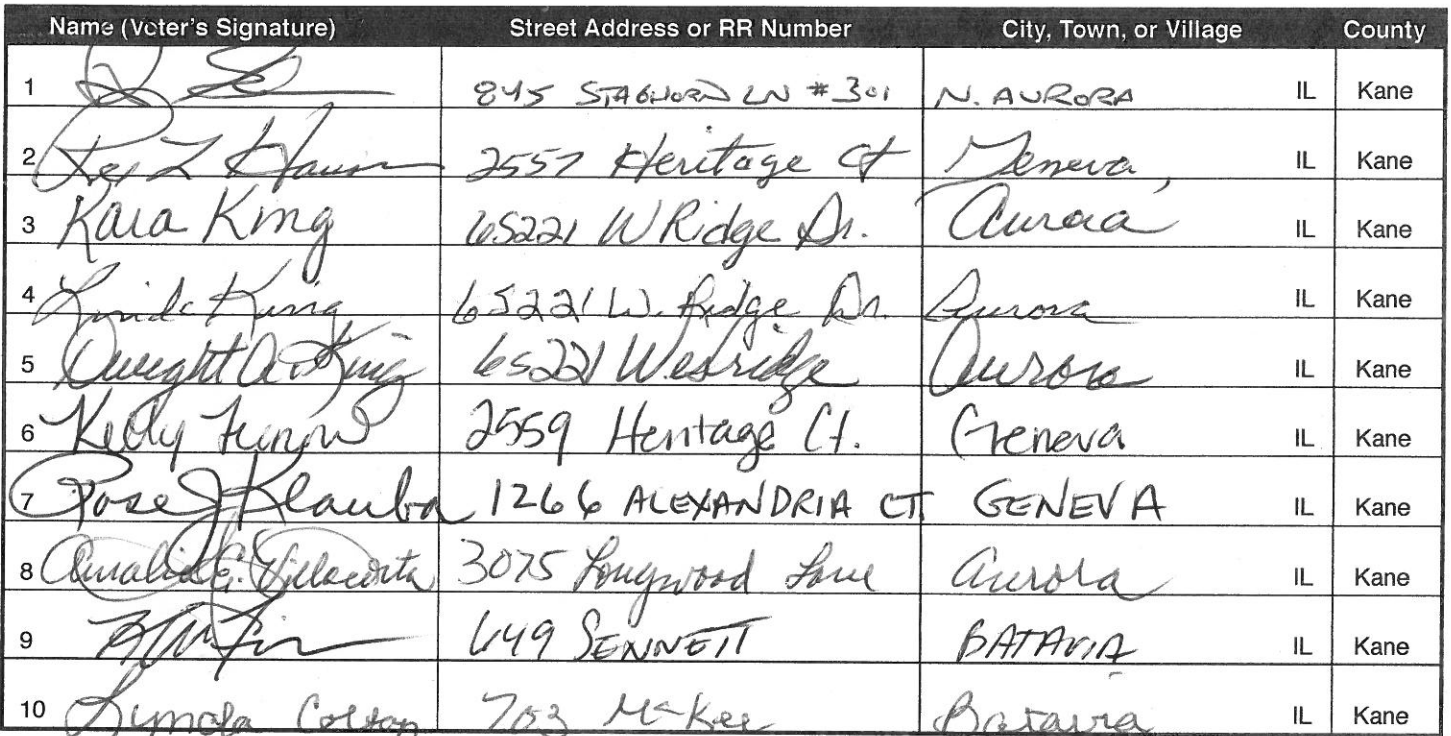 Name (Voter's Signature) Street Address or RR Number City, Town, or Village County
1 845 STAGHORN LN #301 N. AURORA IL Kane
2 2557 Heritage Ct Geneva, IL Kane
3 Kara King 6S221 W Ridge Dr. Aurora IL Kane
4 Linda King 6S221 W. Ridge Dr. Aurora IL Kane
5 Dwight A. King 6S221 Wesridge Aurora IL Kane
6 Kelly 2559 Heritage Ct. Geneva IL Kane
7 Rose J Klauba 1266 ALEXANDRIA CT. GENEVA IL Kane
8 Amalia G. Villacorta 3075 Longwood Lane Aurora IL Kane
9 649 SENNETT BATAVIA IL Kane
10 Lynda Colton 703 McKee Batavia IL Kane